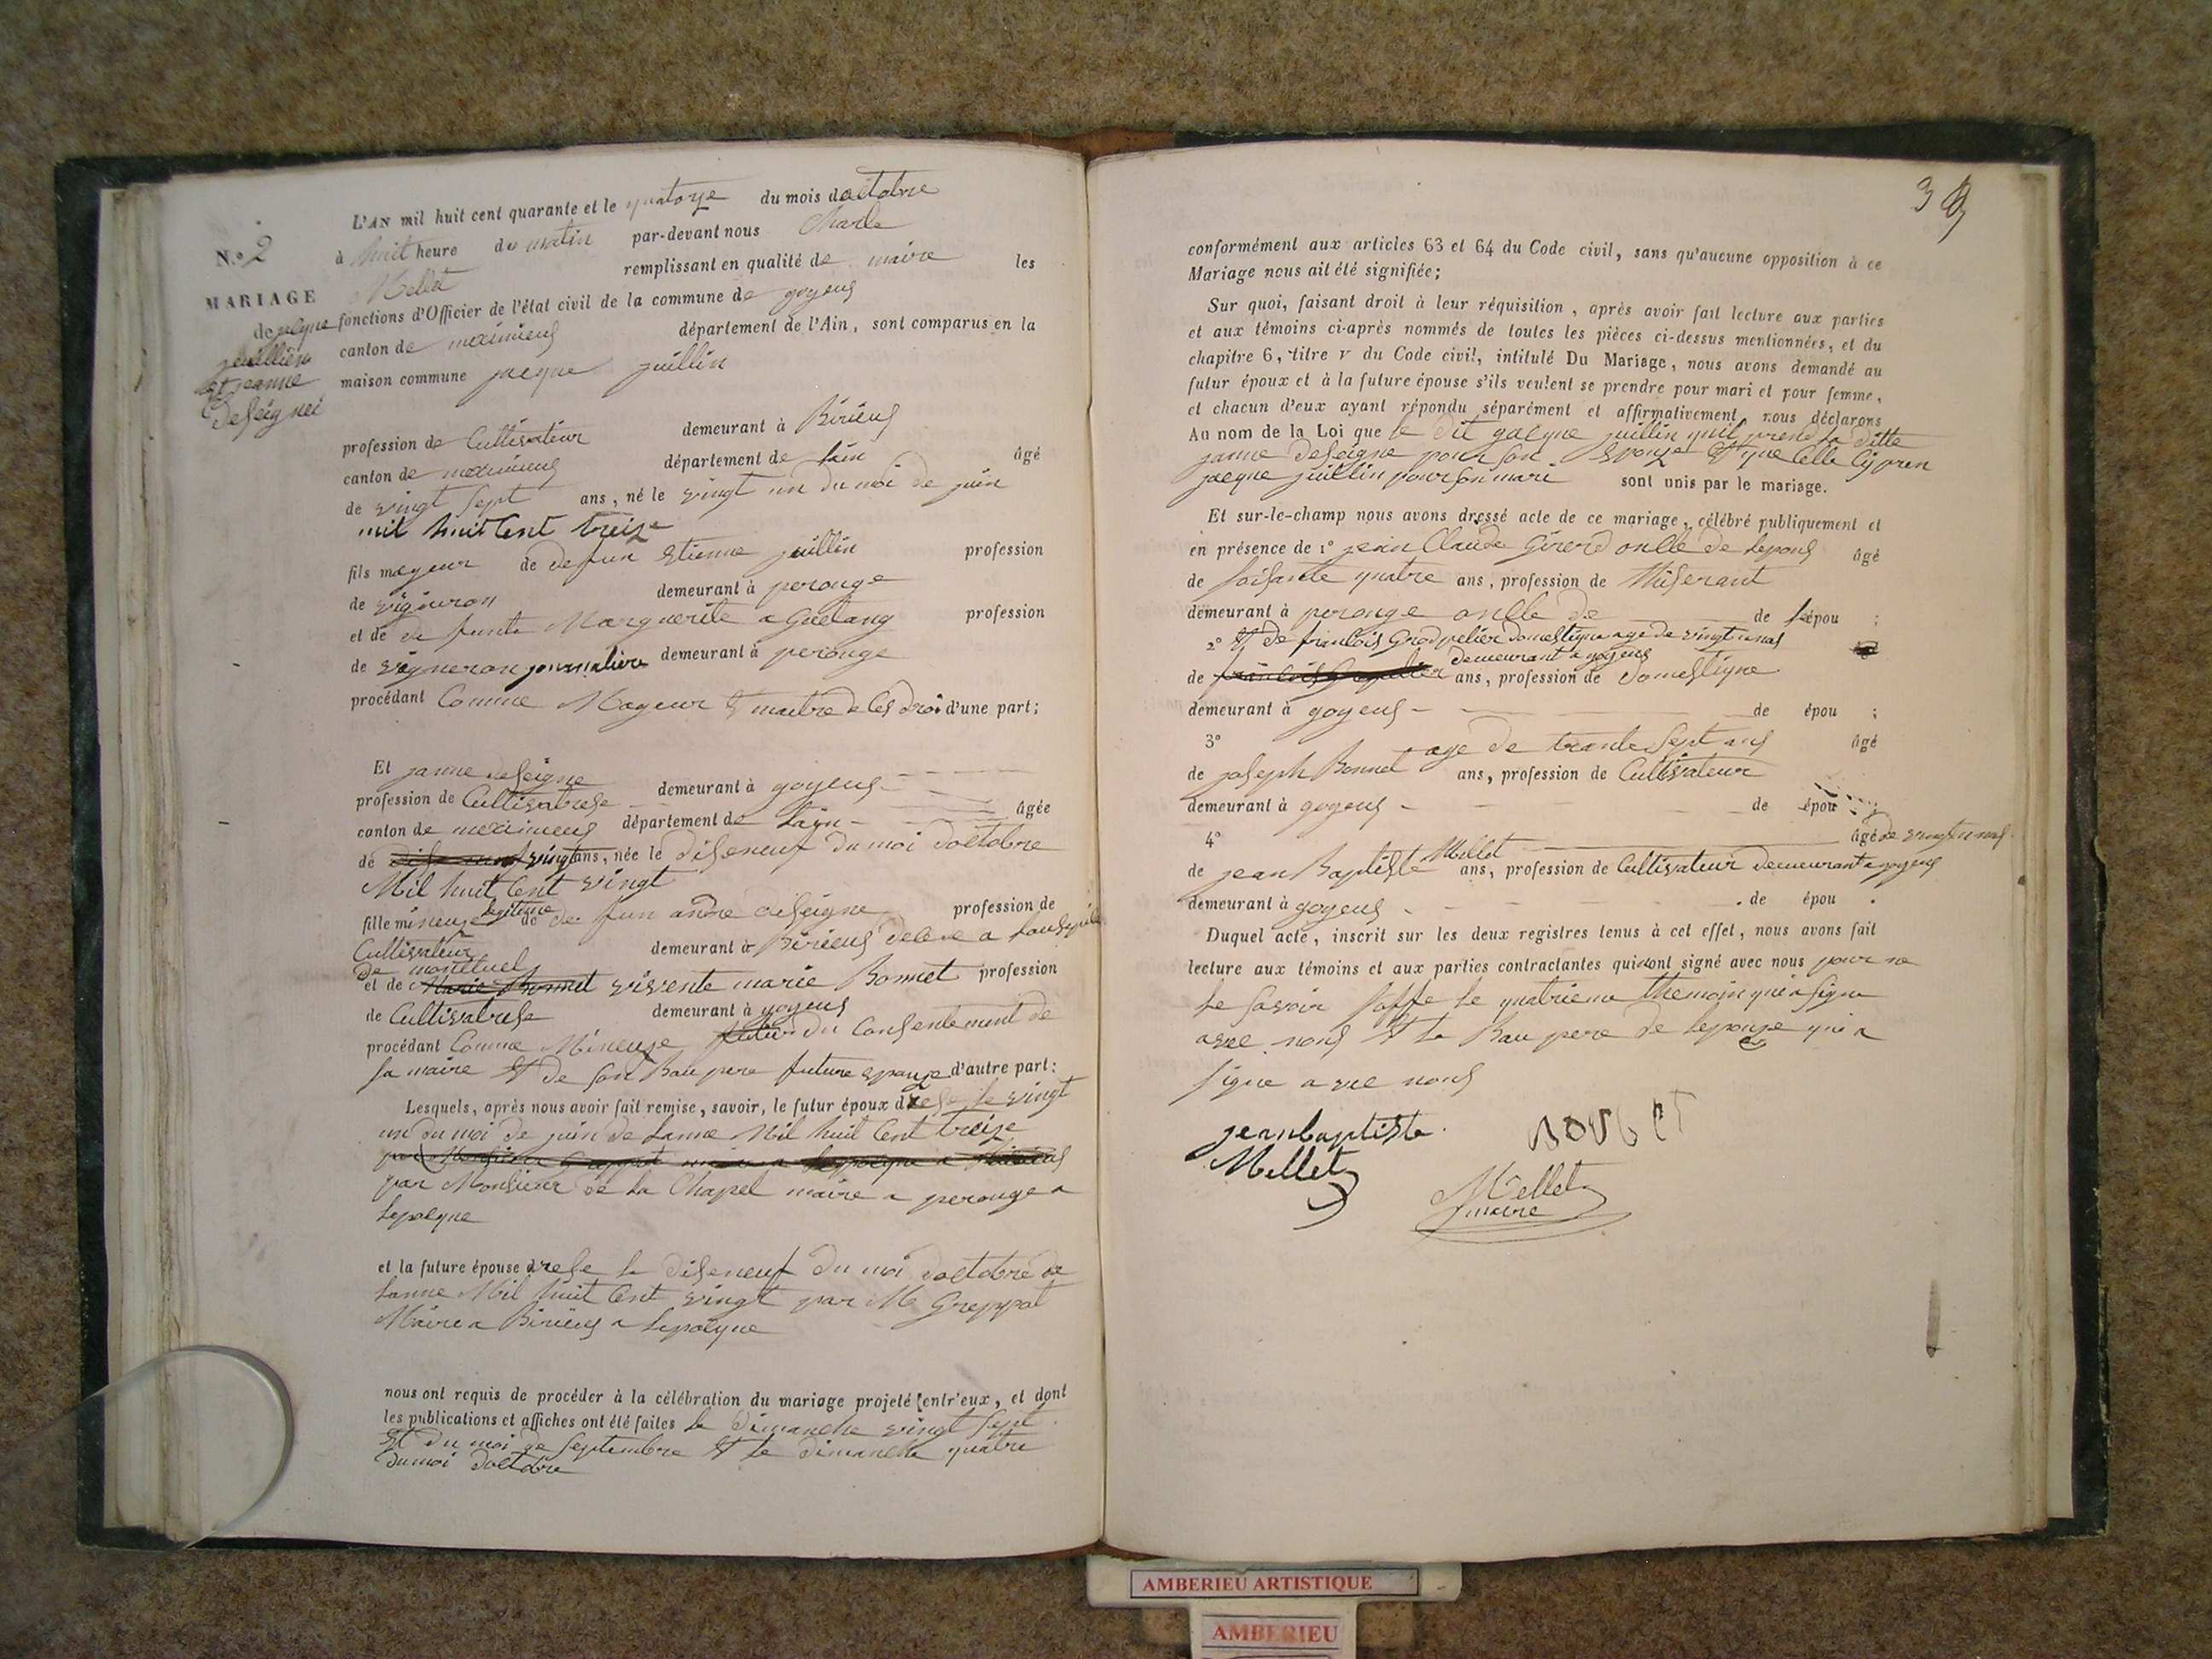 L'AN mil huit cent quarante et le quatorze du mois doctobre
N.o 2
à huit heure du matin par-devant nous Charle
Mellet remplissant en qualité de maire les
MARIAGE
fonctions d'Officier de l'état civil de la commune de goyeus
de
juillin
et jeanne
Deseigne
canton de meximieus département de l'Ain, sont comparus en la
maison commune jacque juillin
profession de Cultivateur demeurant à Birieus
canton de meximieus département de lain âgé
de vingt sept ans, né le vingt un du moi de juin
mil huit Cent treize
fils mageur de defun Etienne juillin profession
de vigneron demeurant à perouge
et de de funte Marguerite a Guetang profession
de vigneron journaliere demeurant à perouge
procédant Comme Mageur Et maitre de Ces droi d'une part;
Et janne deseigne demeurant à goyeus
profession de Cultivatrese
canton de meximieus département de Lain âgée
de vingt ans, née le diseneuf du moi doctobre
Mil huit Cent vingt
fille mineuze legitime de de fun andre deseigne profession de
Cultivateur demeurant à Birieus
de montluel
et de vivente marie Bonnet profession
de Cultivatrese demeurant à goyeus
procédant Comme Mineuze du Consentement de
sa maire Et de son Bau pere future epouze d'autre part:
Lesquels, après nous avoir fait remise, savoir, le futur époux drese le vingt
un du moi de juin de Lanne Mil huit Cent treize
par Monsieur de la Chapel maire a perouge a
Lepoque
et la future épouse drese le diseneuf du moi doctobre de
Lanne Mil huit Cent vingt par M Greppat
Maire a Birieus a Lepoque
nous ont requis de procéder à la célébration du mariage projeté entr'eux, et dont
les publications et affiches ont été faites le dimanche vingt sept
Et du moi de Septembre Et le dimanche quatre
du moi doctobre
conformément aux articles 63 et 64 du Code civil, sans qu'aucune opposition à ce
Mariage nous ait été signifiée;
Sur quoi, faisant droit à leur réquisition, après avoir fait lecture aux parties
et aux témoins ci-après nommés de toutes les pièces ci-dessus mentionnées, et du
chapitre 6, titre v du Code civil, intitulé Du Mariage, nous avons demandé au
futur époux et à la future épouse s'ils veulent se prendre pour mari et pour femme,
et chacun d'eux ayant répondu séparément et affirmativement, nous déclarons
Au nom de la Loi que le dit gacque juillin quil prend la ditte
janne deseigne pour son Epouze Et que Celle Cy pren
jacque juillin pour son mari sont unis par le mariage.
Et sur-le-champ nous avons dressé acte de ce mariage, célébré publiquement et
en présence de 1° jean Claude Girerd onCle de Lepous âgé
de soisante quatre ans, profession de Thiserant
demeurant à perouge onCle de de Lépou ;
2° Et de francois domestique age de vingt
demeurant a goyeus
de ans, profession de domestique
demeurant à goyeus de épou ;
3° age de trante sept ans âgé
de joseph Bonnet ans, profession de Cultivateur
demeurant à goyeus de épou ;
4° Mellet âgé de
de jean Baptiste ans, profession de Cultivateur demeurant a goyeus
demeurant à goyeus de épou .
Duquel acte, inscrit sur les deux registres tenus à cet effet, nous avons fait
lecture aux témoins et aux parties contractantes qui ont signé avec nous pour ne
Le savoir le quatrieme Themoin qui a signe
avec nous Et le Bau pere de Lepouze qui a
signe a vec nous
jeanbaptiste
Mellet
Mellet
maire
AMBERIEU ARTISTIQUE
AMBERIEU